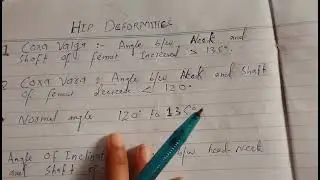 HIP DEFORMITIES
1 Coxa Valga :- Angle b/w Neck and
Shaft of femur Increased > 135°.
2 Coxa Vara : Angle b/w Neck and Shaft
of femur decrease < 120°
Normal angle 120° to 135°
Angle of Inclinati b/w head Neck
and Shaft of